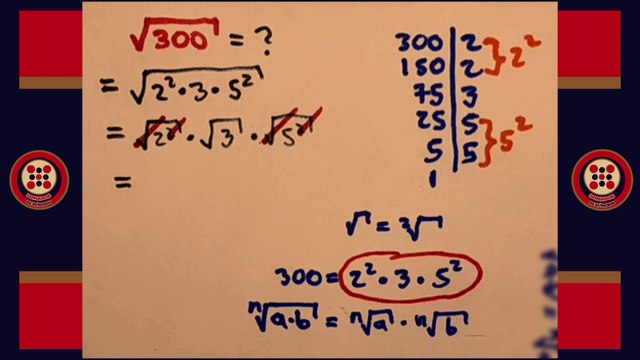 √300 = ?
= √2²·3·5²
= √2² · √3 · √5²
=
300 | 2
150 | 2 } 2²
75 | 3
25 | 5
5 | 5 } 5²
1
√ = ²√
300 = 2²·3·5²
ⁿ√a·b = ⁿ√a · ⁿ√b